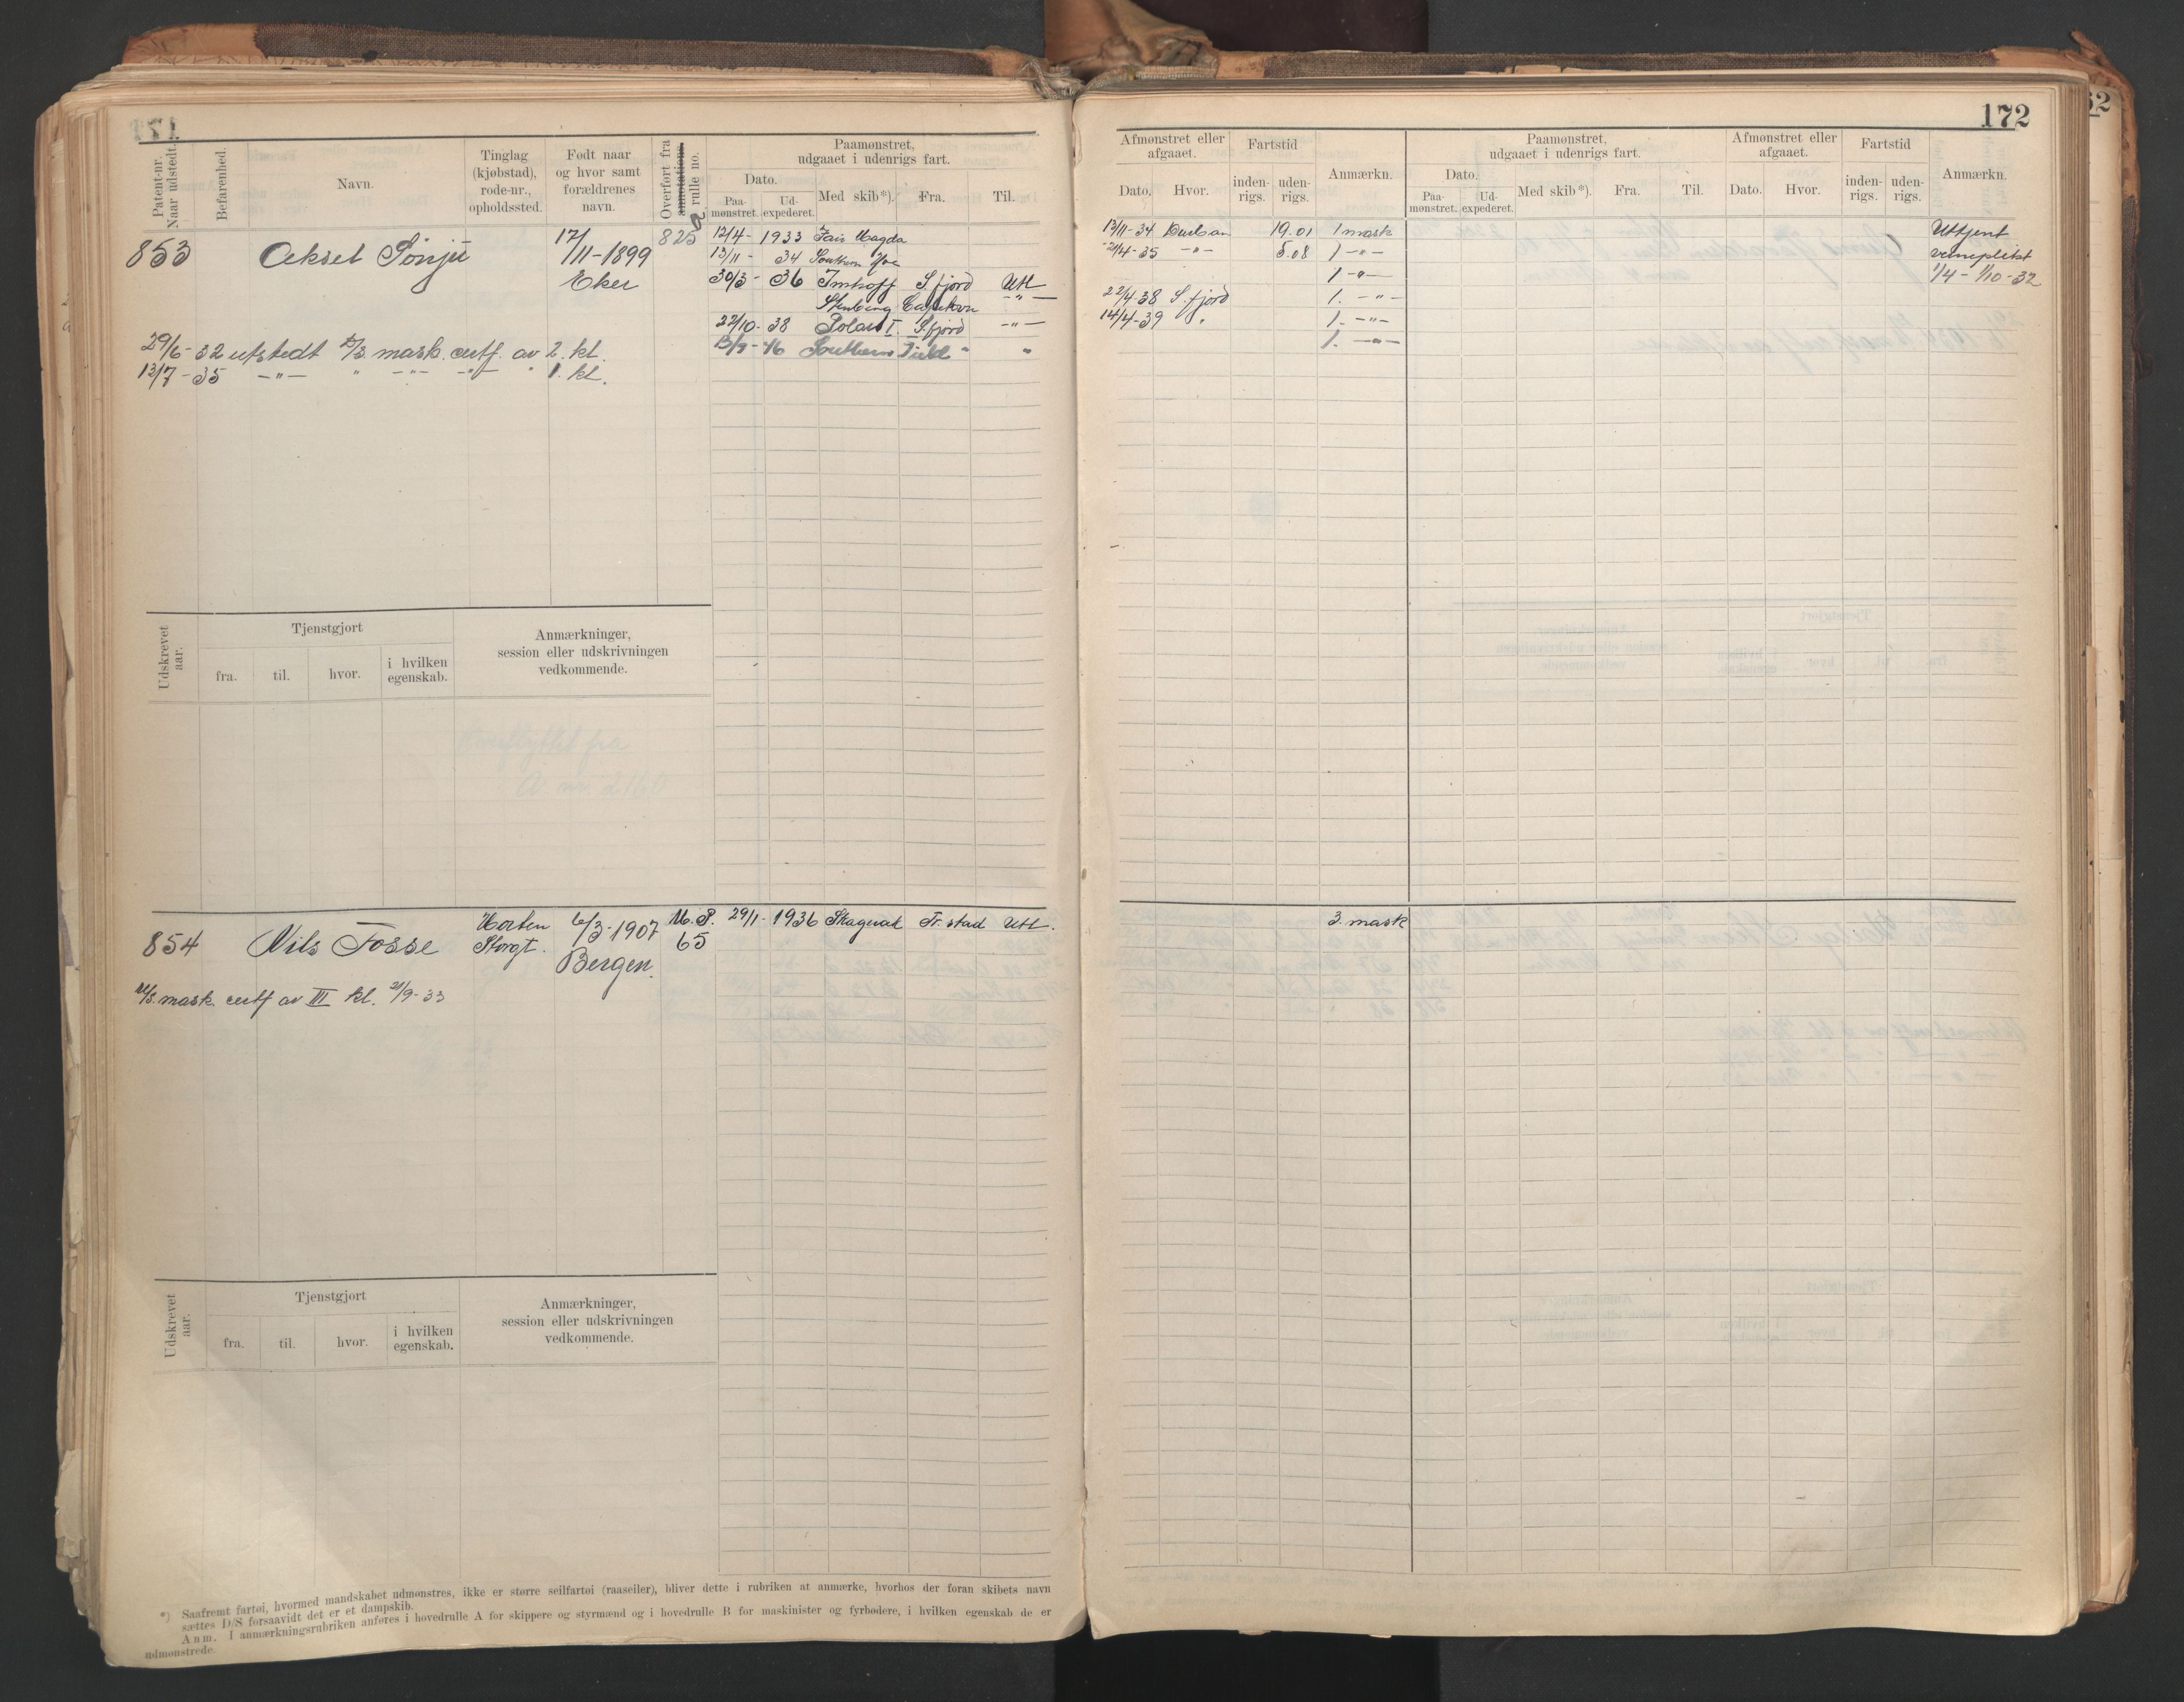 172
Patent-nr. Naar udstedt.
Befarenhed.
Navn.
Tinglag (kjøbstad), rode-nr., opholdssted.
Født naar og hvor samt forældrenes navn.
Overført fra annotations rulle no.
Paamønstret, udgaaet i udenrigs fart.
Dato.
Paamønstret. Udexpederet.
Med skib*).
Fra.
Til.
Afmønstret eller afgaaet.
Dato. Hvor.
Fartstid
indenrigs. udenrigs.
Anmærkn.
Paamønstret, udgaaet i udenrigs fart.
Dato.
Paamønstret. Udexpederet.
Med skib*). Fra. Til.
Afmønstret eller afgaaet.
Dato. Hvor.
Fartstid
indenrigs. udenrigs.
Anmærkn.
853 Aksel Sønju 17/11-1899 825
Eker
12/4- 1933 Fair Magda
13/11- 34 Southern
30/3- 36 Imhoff S.fjord Utl
-"-
22/10- 38 Polar I S.fjord -"-
13/9-46 Southern Field " "
29/6-32 utstedt D/S mask. certf. av 2. kl.
12/7-35 -"- " -"- -"- " 1. kl.
13/11-34 Durban 19.01 1 mask
21/4-35 -"- 5.08 1 -"-
1 -"-
22/4-38 S.fjord 1. -"-
14/4-39 " 1. -"-
1. -"-
Uttjent
verneplikt
1/4 - 1/10-32
Udskrevet aar.
Tjenstgjort
fra. til. hvor. i hvilken egenskab.
Anmærkninger, session eller udskrivningen vedkommende.
854 Nils Fosse Horten 6/3-1907 M.P. 29/1- 1936 Skagerak Fr.stad Utl. 3. mask
Storgt. Bergen. 65
M/S. mask. certf av III kl. 21/9-33
Udskrevet aar.
Tjenstgjort
fra. til. hvor. i hvilken egenskab.
Anmærkninger, session eller udskrivningen vedkommende.
*) Saafremt fartøi, hvormed mandskabet udmønstres, ikke er større seilfartøi (raaseiler), bliver dette i rubriken at anmærke, hvorhos der foran skibets navn
sættes D/S forsaavidt det er et dampskib.
Anm. I anmærkningsrubriken anføres i hovedrulle A for skippere og styrmænd og i hovedrulle B for maskinister og fyrbødere, i hvilken egenskab de er
udmønstrede.